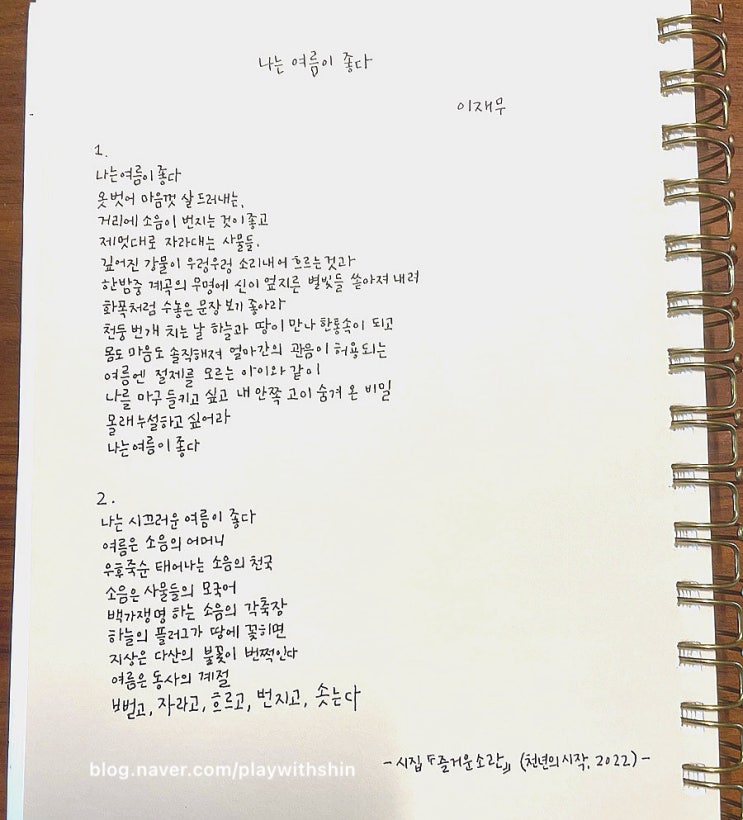 나는 여름이 좋다
이재무
1.
나는 여름이 좋다
옷 벗어 마음껏 살 드러내는,
거리에 소음이 번지는 것이 좋고
제멋대로 자라대는 사물들,
깊어진 강물이 우렁우렁 소리 내어 흐르는 것과
한밤중 계곡의 무명에 신이 엎지른 별빛들 쏟아져 내려
화폭처럼 수놓은 문장 보기 좋아라
천둥 번개 치는 날 하늘과 땅이 만나 한통속이 되고
몸도 마음도 솔직해져 얼마간의 관음이 허용되는
여름엔 절제를 모르는 아이와 같이
나를 마구 들키고 싶고 내 안쪽 고이 숨겨 온 비밀
몰래 누설하고 싶어라
나는 여름이 좋다
2.
나는 시끄러운 여름이 좋다
여름은 소음의 어머니
우후죽순 태어나는 소음의 천국
소음은 사물들의 모국어
백가쟁명 하는 소음의 각축장
하늘의 플러그가 땅에 꽂히면
지상은 다산의 불꽃이 번쩍인다
여름은 동사의 계절
뻗고, 자라고, 흐르고, 번지고, 솟는다
- 시집 『즐거운 소란』 (천년의시작, 2022) -
blog.naver.com/playwithshin